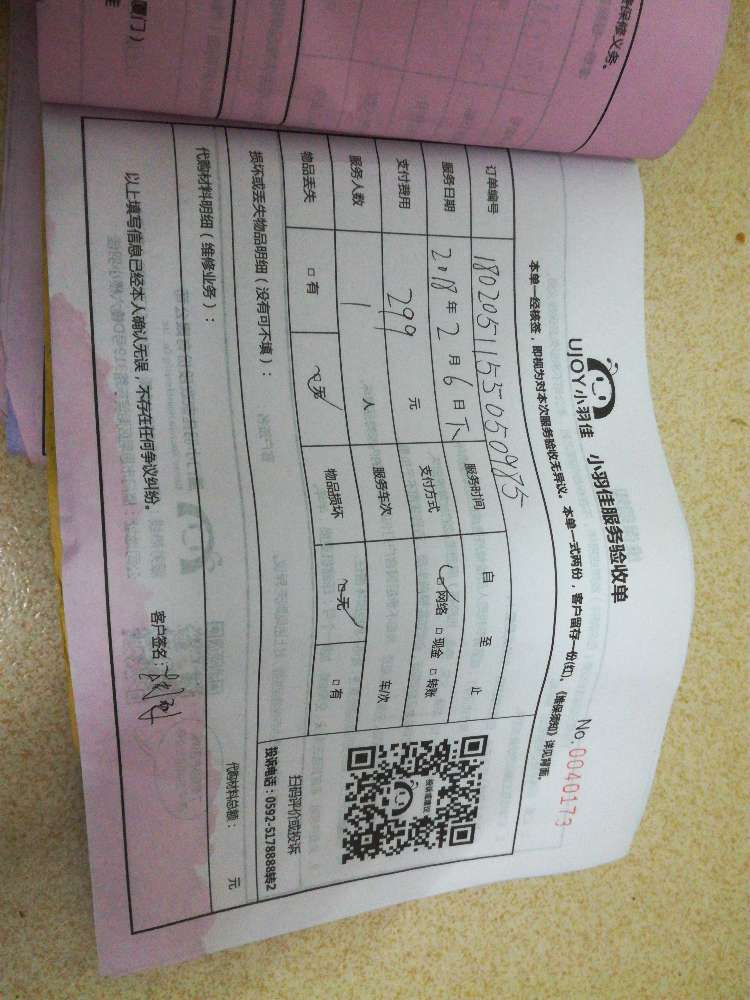 障保修义务。
厦门）
UJOY小羽佳 小羽佳服务验收单
No.0040173
本单一经核签，即视为对本次服务验收无异议。本单一式两份，客户留存一份(红)。《维保须知》详见背面。
订单编号 180205115505 0985
服务日期 2018 年 2 月 6 日 下 服务时间 自 至 止
支付费用 299 元 支付方式 ☑网络 □现金 □转账
服务人数 1 人 服务车次 车/次
物品丢失 □有 ☑无 物品损坏 ☑无 □有
按诉或建议
扫码评价或投诉
投诉电话：0592-5178888转2
损坏或丢失物品明细（没有可不填）：
代购材料明细（维修业务）：
代购材料总额： 元
以上填写信息已经本人确认无误，不存在任何争议纠纷。
客户签名：